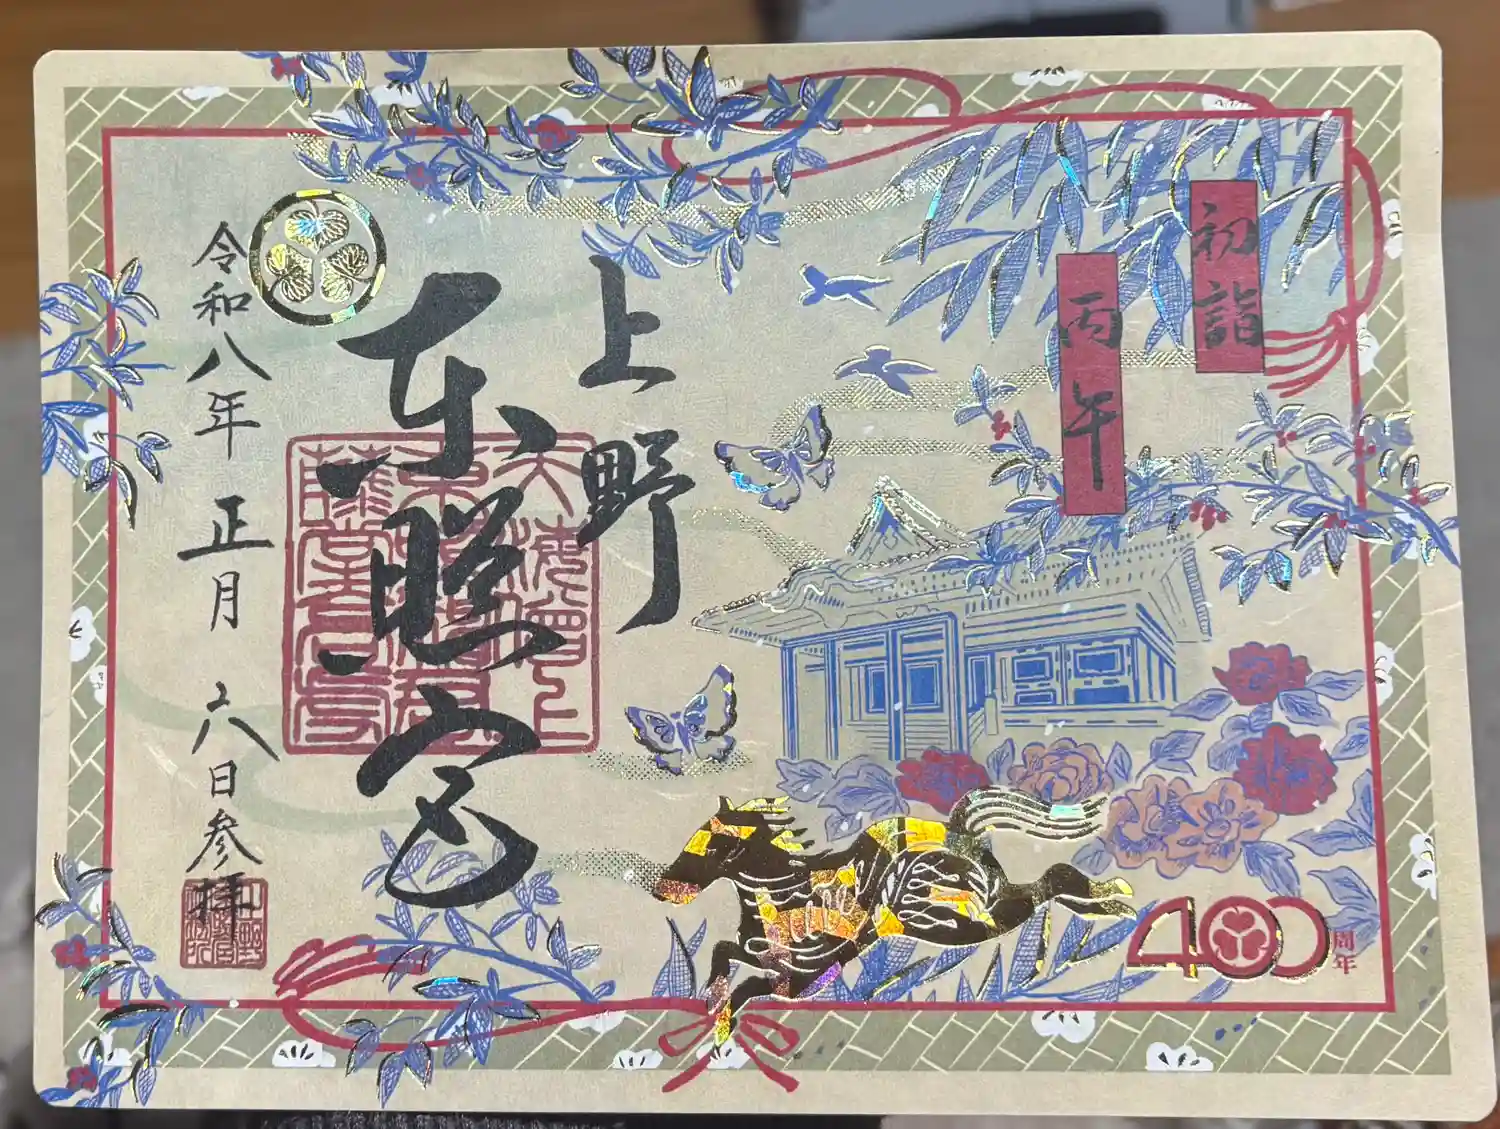 初詣
丙午
上野
東照宮
令和八年正月六日参拝
400周年